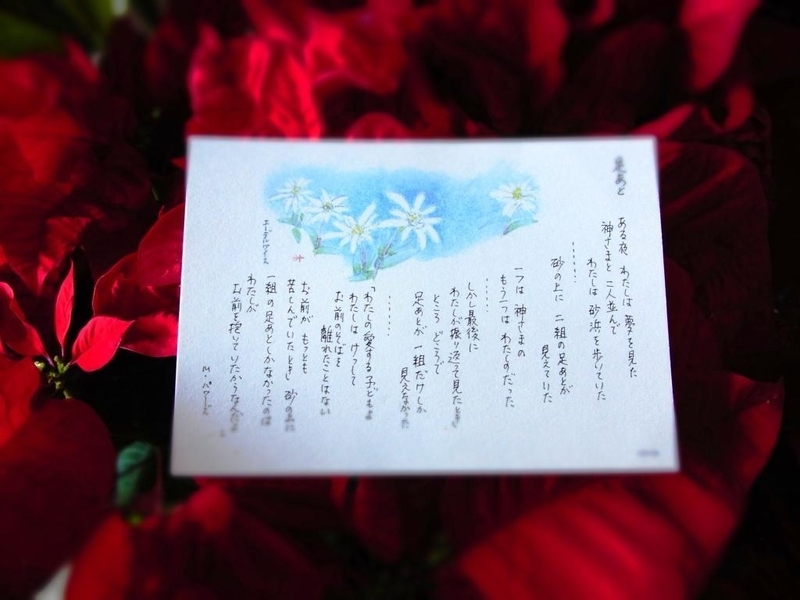 足あと
ある夜 わたしは 夢を見た
神さまと 二人並んで
わたしは 砂浜を歩いていた
‥‥‥
砂の上に 二組の足あとが
見えていた
一つは 神さまの
もう一つは わたしのだった
‥‥‥
しかし最後に
わたしが振り返って見たとき
ところどころで
足あとが 一組だけしか
見えなかった
‥‥‥
「わたしの愛する子どもよ
わたしは けっして
お前のそばを
離れたことはない
お前が もっとも
苦しんでいたとき 砂の上に
一組の足あとしかなかったのは
わたしが
お前を抱いていたからなんだよ
エーデルワイス